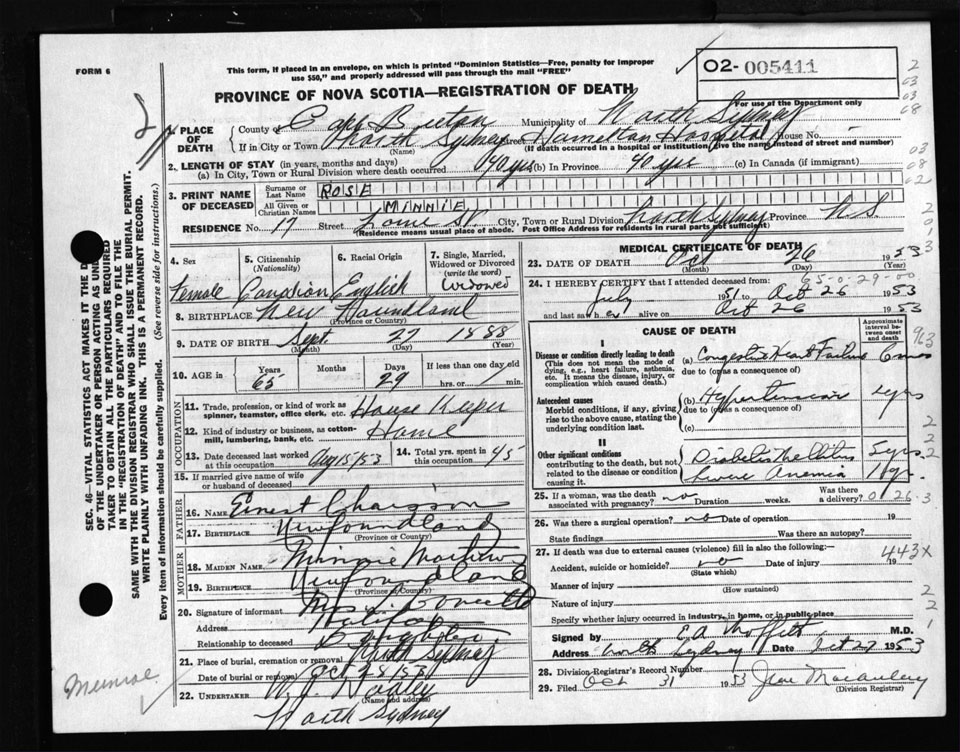 FORM 6
This form, if placed in an envelope, on which is printed "Dominion Statistics—Free, penalty for improper
use $50," and properly addressed will pass through the mail "FREE"
O2- 005411
PROVINCE OF NOVA SCOTIA—REGISTRATION OF DEATH
For use of the Department only
1. PLACE OF DEATH
County of Cape Breton Municipality of North Sydney
If in City or Town North Sydney Street Hamilton Hospital House No.
(Name) (If death occurred in a hospital or institution, give the name instead of street and number)
2. LENGTH OF STAY (in years, months and days)
(a) In City, Town or Rural Division where death occurred 40 yrs (b) In Province 40 yrs (c) In Canada (if immigrant)
3. PRINT NAME OF DECEASED
Surname or Last Name ROSE
All Given or Christian Names MINNIE
RESIDENCE No. 17 Street City, Town or Rural Division North Sydney Province N.S.
(Residence means usual place of abode. Post Office Address for residents in rural parts not sufficient)
4. Sex Female
5. Citizenship (Nationality) Canadian
6. Racial Origin English
7. Single, Married, Widowed or Divorced (write the word) Widowed
8. BIRTHPLACE New Foundland
(Province or Country)
9. DATE OF BIRTH Sept. 27 1888
(Month) (Day) (Year)
10. AGE in Years 65 Months Days 29 If less than one day old hrs. or min.
OCCUPATION
11. Trade, profession, or kind of work as spinner, teamster, office clerk, etc. House Keeper
12. Kind of industry or business, as cotton-mill, lumbering, bank, etc. Home
13. Date deceased last worked at this occupation Aug 15/53
14. Total yrs. spent in this occupation 45
15. If married give name of wife or husband of deceased
FATHER
16. Name Ernest
17. BIRTHPLACE Newfoundland
(Province or Country)
MOTHER
18. MAIDEN NAME Minnie
19. BIRTHPLACE Newfoundland
(Province or Country)
20. Signature of informant Mrs.
Address Halifax
Relationship to deceased Daughter
21. Place of burial, cremation or removal North Sydney
Date of burial or removal Oct 28/53
22. UNDERTAKER
(Name and address)
North Sydney
MEDICAL CERTIFICATE OF DEATH
23. DATE OF DEATH Oct 26 1953
(Month) (Day) (Year)
65-0-29-00
24. I HEREBY CERTIFY that I attended deceased from:
July 1951 to Oct 26 1953
and last saw her alive on Oct 26 1953
CAUSE OF DEATH
Approximate interval between onset and death
I
Disease or condition directly leading to death
(This does not mean the mode of dying, e.g., heart failure, asthenia, etc. It means the disease, injury, or complication which caused death.)
(a) Congestive Heart Failure 6 mos
due to (or as a consequence of)
Antecedent causes
Morbid conditions, if any, giving rise to the above cause, stating the underlying condition last.
(b) Hypertension yrs
due to (or as a consequence of)
(c)
II
Other significant conditions
contributing to the death, but not related to the disease or condition causing it.
Diabetes Mellitus 5 yrs
Severe Anemia 1 yr
25. If a woman, was the death associated with pregnancy? no Duration weeks. Was there a delivery?
26. Was there a surgical operation? no Date of operation 19
State findings Was there an autopsy?
27. If death was due to external causes (violence) fill in also the following:—
443X
Accident, suicide or homicide? no Date of injury 19
(State which)
Manner of injury
(How sustained)
Nature of injury
Specify whether injury occurred in industry, in home, or in public place
Signed by E A Moffitt M.D.
Address North Sydney Date Oct 27 1953
28. Division-Registrar's Record Number
29. Filed Oct 31 1953 Jean Macaulay
(Division Registrar)
SEC. 46—VITAL STATISTICS ACT MAKES IT THE D
OF THE UNDERTAKER OR PERSON ACTING AS UND
TAKER TO OBTAIN ALL THE PARTICULARS REQUIRED
IN THE "REGISTRATION OF DEATH" AND TO FILE THE
SAME WITH THE DIVISION REGISTRAR WHO SHALL ISSUE THE BURIAL PERMIT.
WRITE PLAINLY WITH UNFADING INK. THIS IS A PERMANENT RECORD.
Every item of information should be carefully supplied. (See reverse side for instructions.)
Munroe